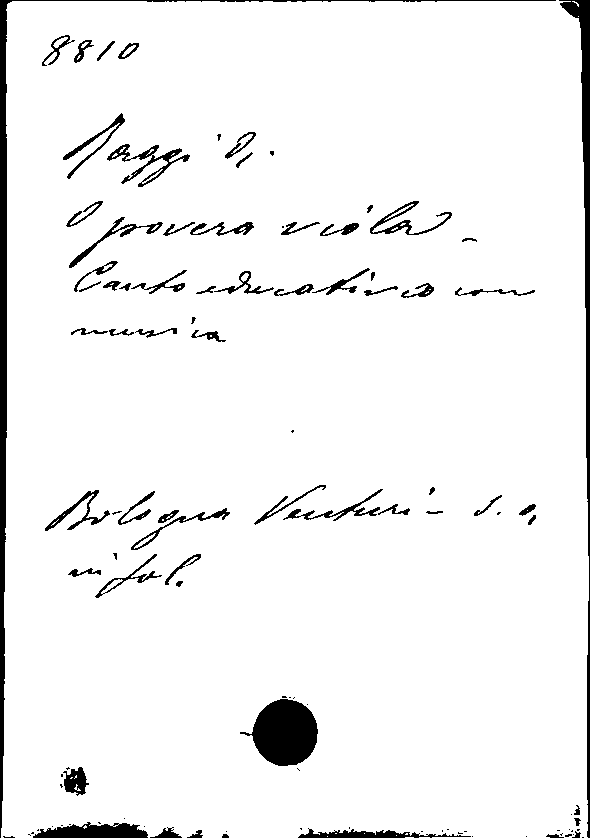 8810
Raggi D.
O povera viola -
Canto educativo con
musica
Bologna Venturi - s. a.
in fol.